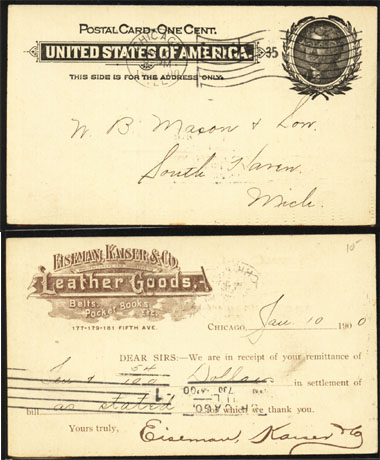 POSTAL CARD-ONE CENT.
UNITED STATES OF AMERICA.
THIS SIDE IS FOR THE ADDRESS ONLY.
CHICAGO
35
W. B. Mason & Son.
South Haven
Mich.
EISEMAN, KAISER & CO.
Leather Goods,
Belts,
Pocket Books,
Etc.
177-179-181 FIFTH AVE.
CHICAGO, Jan 10 1900
DEAR SIRS:—We are in receipt of your remittance of
54
100 Dollars in settlement of
bill as stated for which we thank you.
CHICAGO,
Yours truly, Eiseman, Kaiser & Co